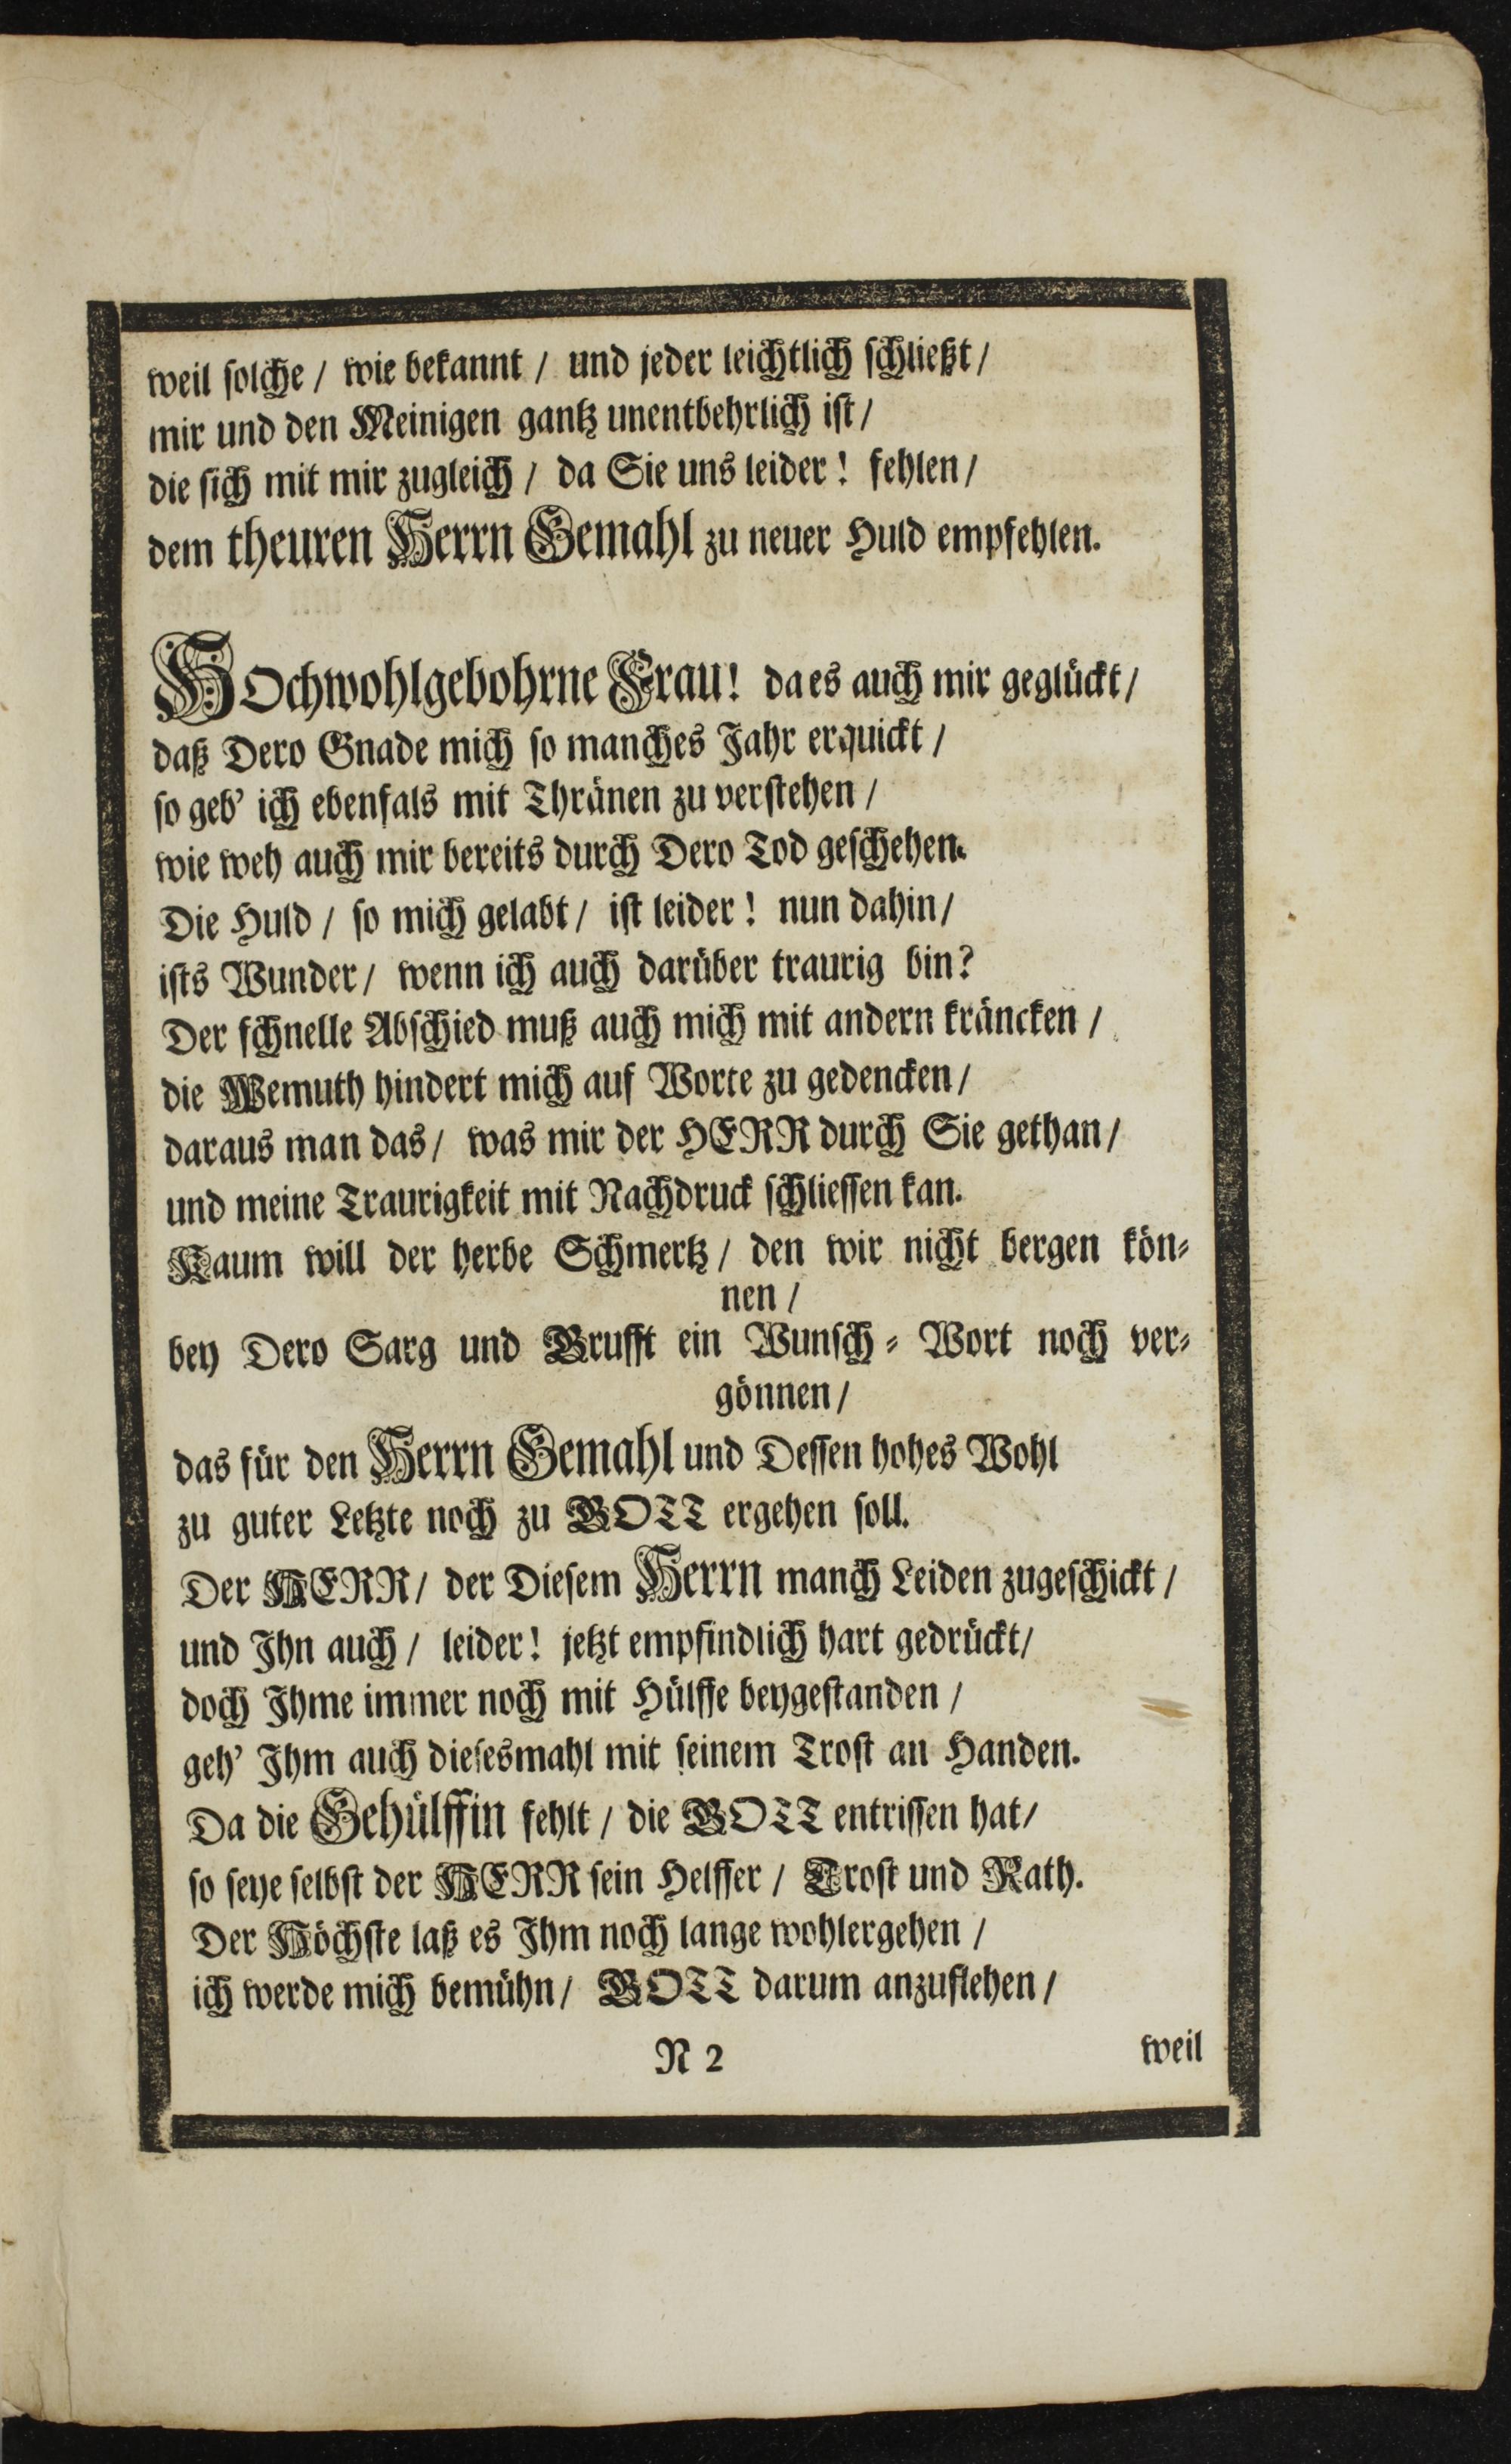 weil solche / wie bekannt / und jeder leichtlich schließt /
mir und den Meinigen gantz unentbehrlich ist /
die sich mit mir zugleich / da Sie uns leider! fehlen /
dem theuren Herrn Gemahl zu neuer Huld empfehlen.
HOchwohlgebohrne Frau! da es auch mir geglückt /
daß Dero Gnade mich so manches Jahr erquickt /
so geb' ich ebenfals mit Thränen zu verstehen /
wie weh auch mir bereits durch Dero Tod geschehen.
Die Huld / so mich gelabt / ist leider! nun dahin /
ists Wunder / wenn ich auch darüber traurig bin?
Der schnelle Abschied muß auch mich mit andern kräncken /
die Wemuth hindert mich auf Worte zu gedencken /
daraus man das / was mir der HERR durch Sie gethan /
und meine Traurigkeit mit Nachdruck schliessen kan.
Kaum will der herbe Schmertz / den wir nicht bergen kön-
nen /
bey Dero Sarg und Grufft ein Wunsch-Wort noch ver-
gönnen /
das für den Herrn Gemahl und Dessen hohes Wohl
zu guter Letzte noch zu GOTT ergehen soll.
Der HERR / der Diesem Herrn manch Leiden zugeschickt /
und Ihn auch / leider! jetzt empfindlich hart gedrückt /
doch Ihme immer noch mit Hülffe beygestanden /
geh' Ihm auch diesesmahl mit seinem Trost an Handen.
Da die Gehülffin fehlt / die GOTT entrissen hat /
so seye selbst der HERR sein Helffer / Trost und Rath.
Der Höchste laß es Ihm noch lange wohlergehen /
ich werde mich bemühn / GOTT darum anzuflehen /
N 2
weil